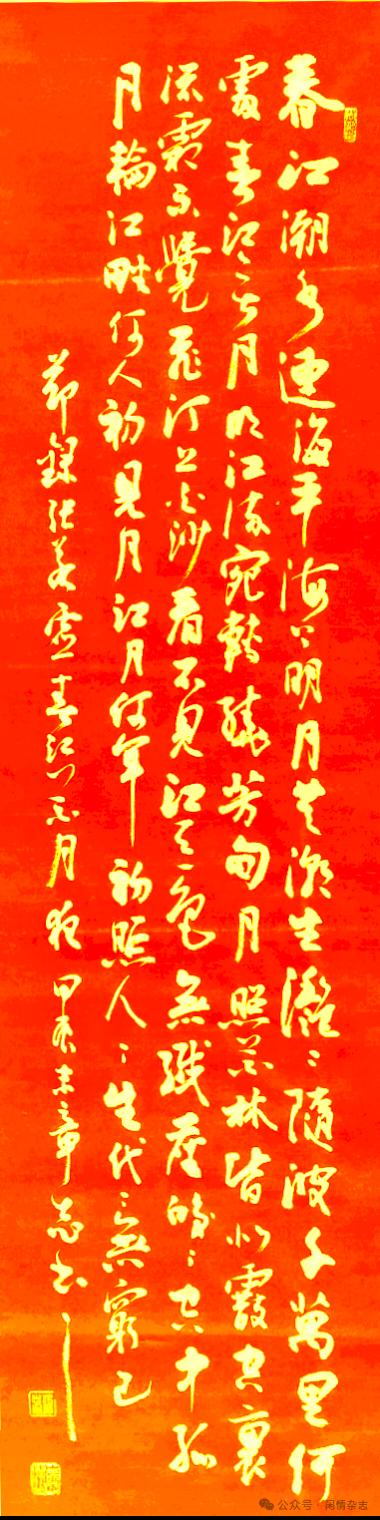 春江潮水連海平海上明月共潮生灩〻隨波千萬里何
處春江无月明江流宛轉繞芳甸月照花林皆似霰空裏
流霜不覺飛汀上白沙看不見江天一色無纖塵皎〻空中孤
月輪江畔何人初見月江月何年初照人〻生代〻無窮已
節錄張若虛春江花月夜 甲辰 章志書
公众号 · 闲情杂志